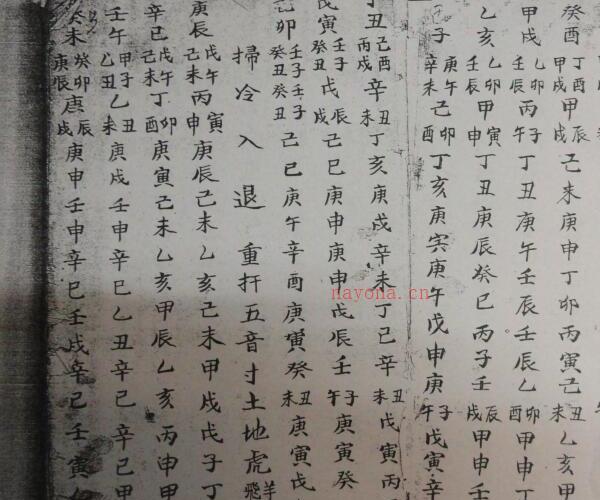 癸酉丁酉甲戌甲辰戌己未庚申丁卯丙寅己丑未乙亥甲
甲戌乙卯壬辰丙子午丁丑庚午壬辰壬辰乙卯酉甲申甲
乙亥乙卯壬辰甲寅申丁丑庚辰癸巳丙子壬辰戌甲申壬
子庚午辛未己卯酉丁亥庚寅庚午戊申庚子午戊寅辛
丁丑己酉丙戌辛丑未丁亥庚戌辛未丁巳辛丑未戊寅丙
戊寅壬子癸丑戊辰戌己巳庚申庚申戊辰壬子午庚寅癸
己卯壬子壬子癸丑癸丑己巳庚午辛酉庚寅癸丑未庚寅戊
掃冷入退重扦五音寸土地虎羊飛
庚辰戊午己未丙寅申庚辰己未乙亥己未甲戌戊子丁
辛巳戊午己未丁卯酉庚寅己未乙亥甲辰乙亥丙申甲
壬午甲子乙丑乙丑未庚戌壬申辛巳乙丑辛巳辛巳甲
癸未癸卯庚辰庚辰戌庚申壬申辛巳壬戌辛巳壬寅
nayona.cn